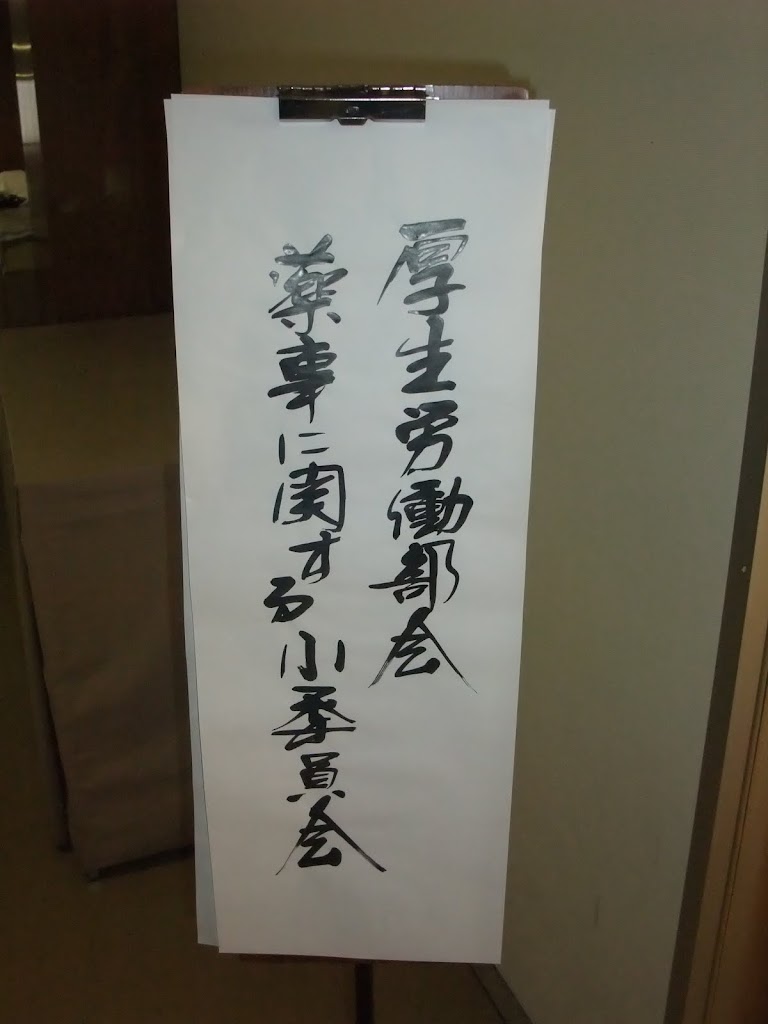 厚生労働部会
薬事に関する小委員会